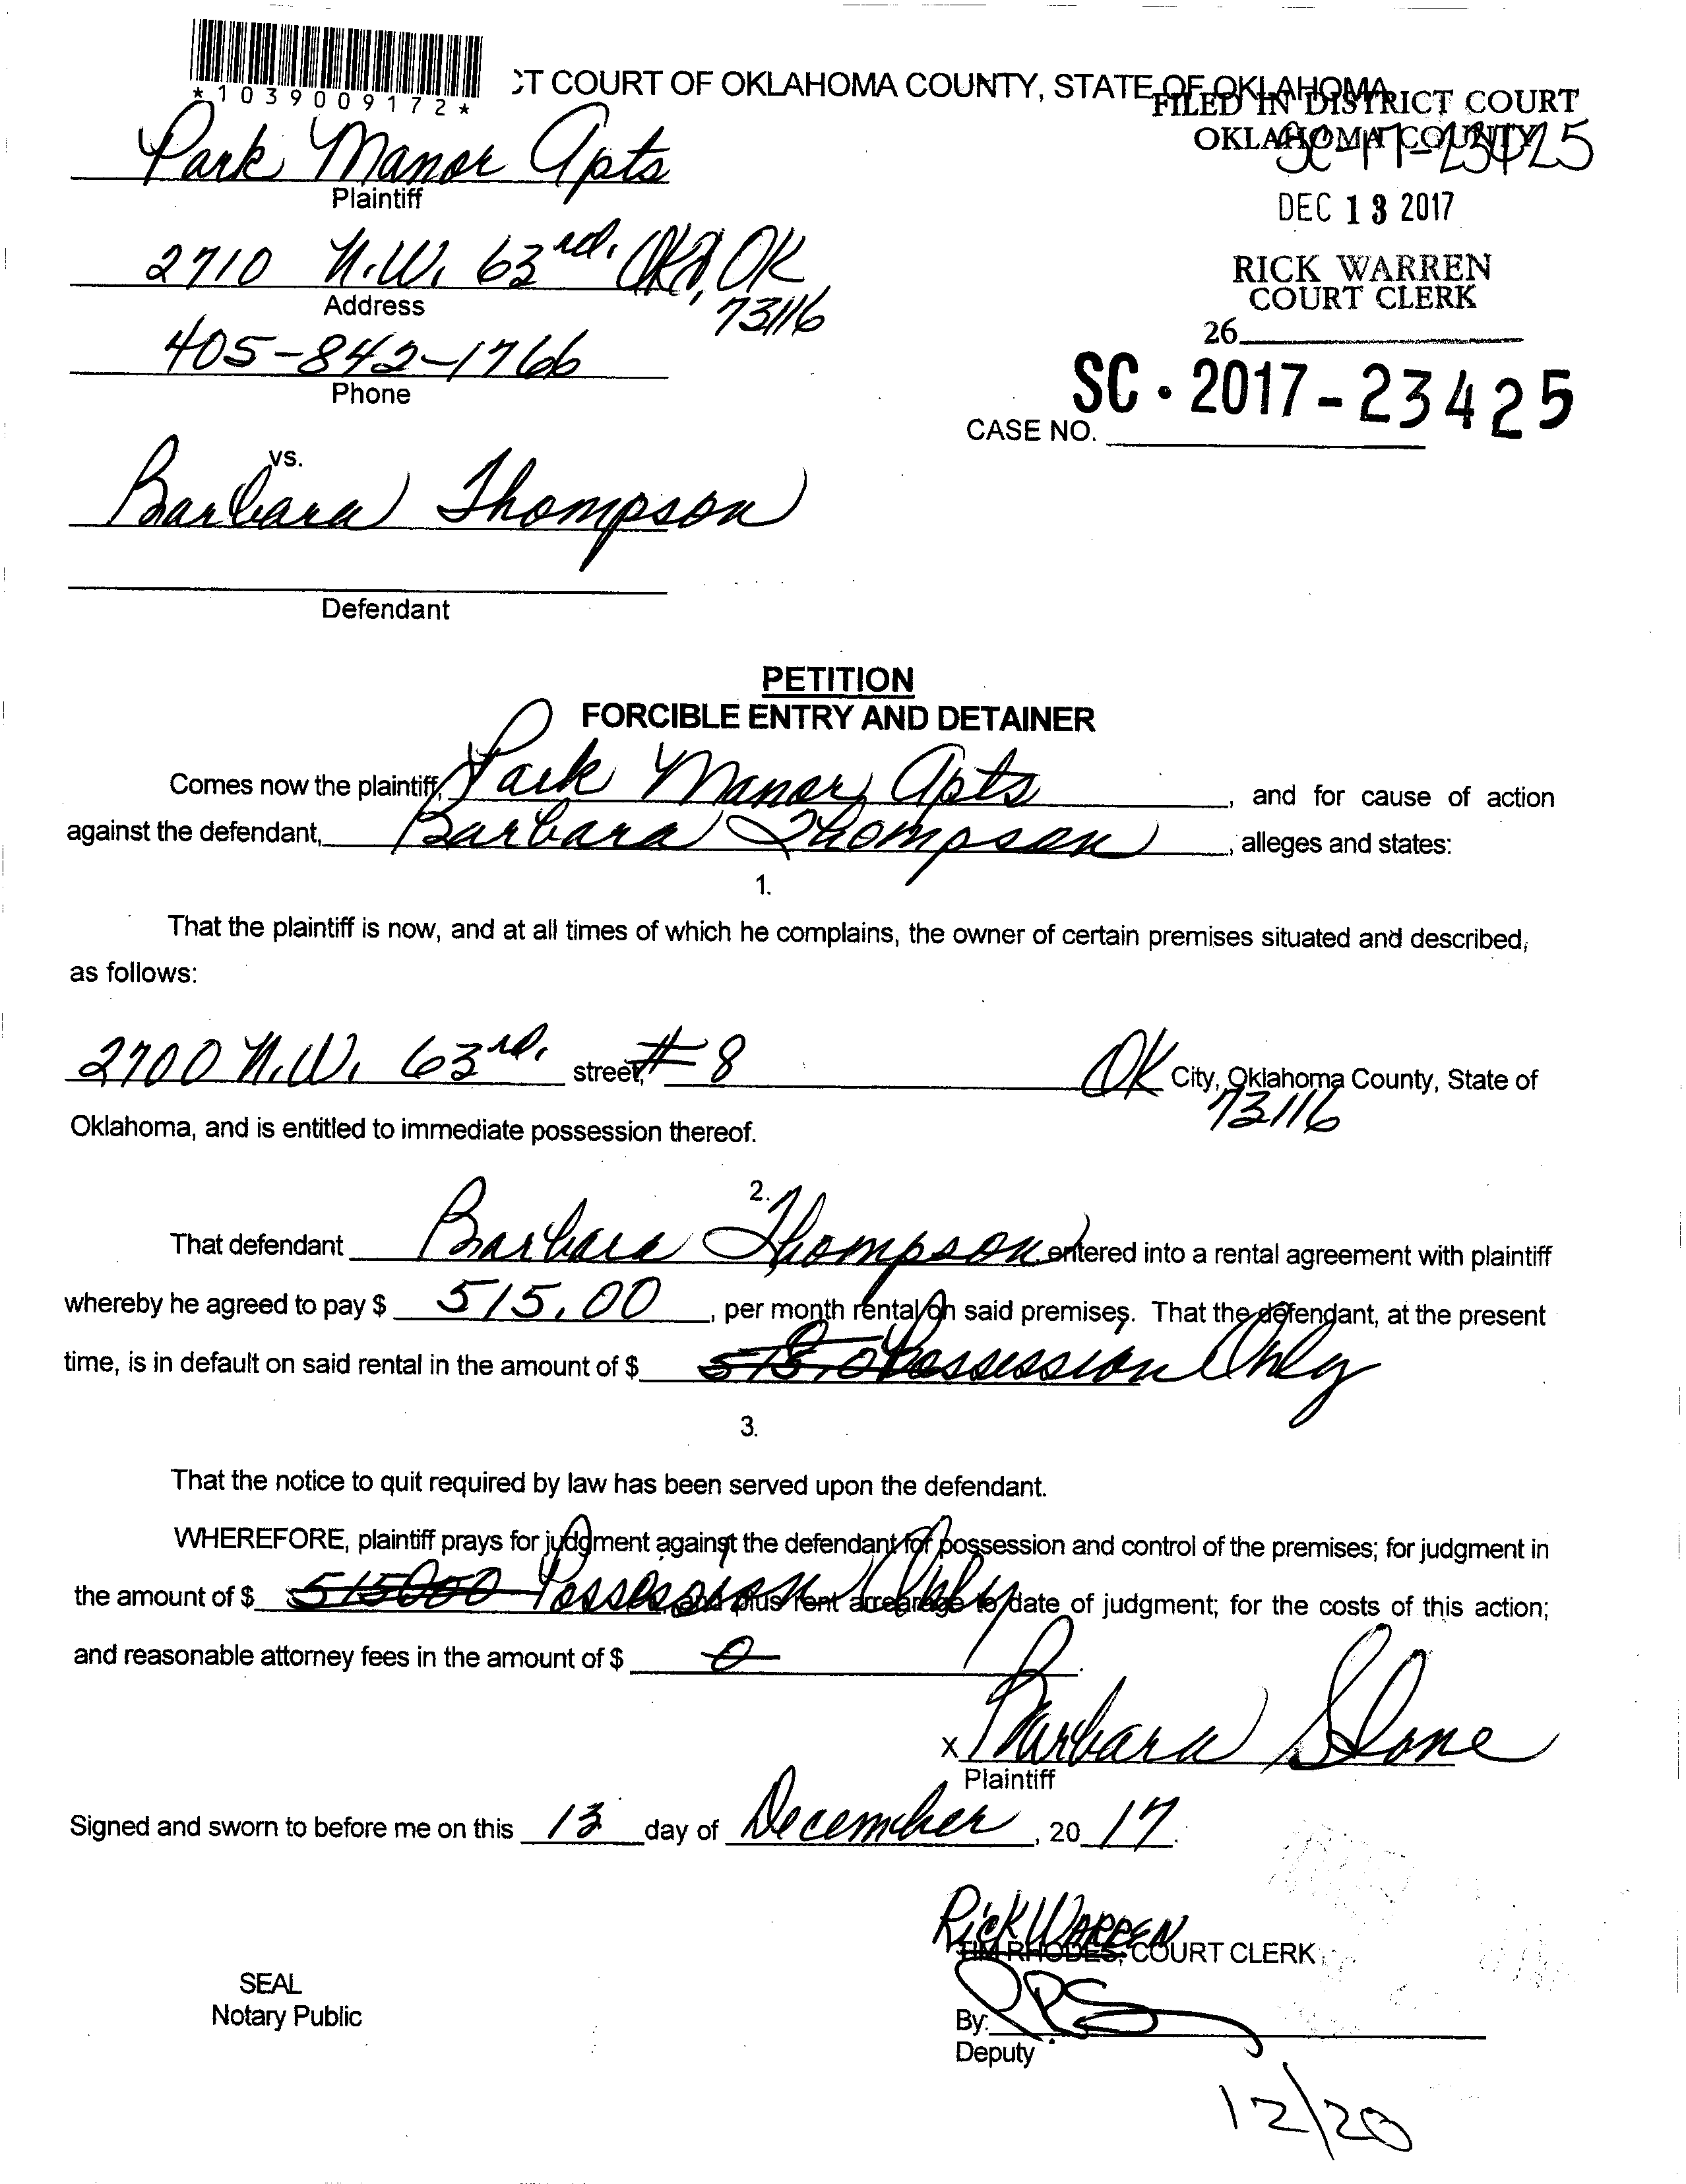 *1039009172*
CT COURT OF OKLAHOMA COUNTY, STATE OF OKLAHOMA
FILED IN DISTRICT COURT
OKLAHOMA COUNTY
SC-17-23425
Park Manor Apts
Plaintiff
DEC 13 2017
2710 N.W. 63rd. OKC, OK
Address
73116
RICK WARREN
COURT CLERK
26
405-842-1766
Phone
SC-2017-23425
CASE NO.
vs.
Barbara Thompson
Defendant
PETITION
FORCIBLE ENTRY AND DETAINER
Comes now the plaintiff, Park Manor Apts, and for cause of action
against the defendant, Barbara Thompson, alleges and states:
1.
That the plaintiff is now, and at all times of which he complains, the owner of certain premises situated and described,
as follows:
2700 N.W. 63rd. street, #8 OK City, Oklahoma County, State of
73116
Oklahoma, and is entitled to immediate possession thereof.
2.
That defendant Barbara Thompson entered into a rental agreement with plaintiff
whereby he agreed to pay $ 515.00, per month rental on said premises. That the defendant, at the present
time, is in default on said rental in the amount of $ Possession Only
3.
That the notice to quit required by law has been served upon the defendant.
WHEREFORE, plaintiff prays for judgment against the defendant for possession and control of the premises; for judgment in
the amount of $ 515000 Possession Only, and plus rent arrearage to date of judgment; for the costs of this action;
and reasonable attorney fees in the amount of $ 0.
X Barbara Slone
Plaintiff
Signed and sworn to before me on this 13 day of December, 2017.
Rick Warren
TIM RHODES, COURT CLERK
SEAL
Notary Public
By:
Deputy
12/20